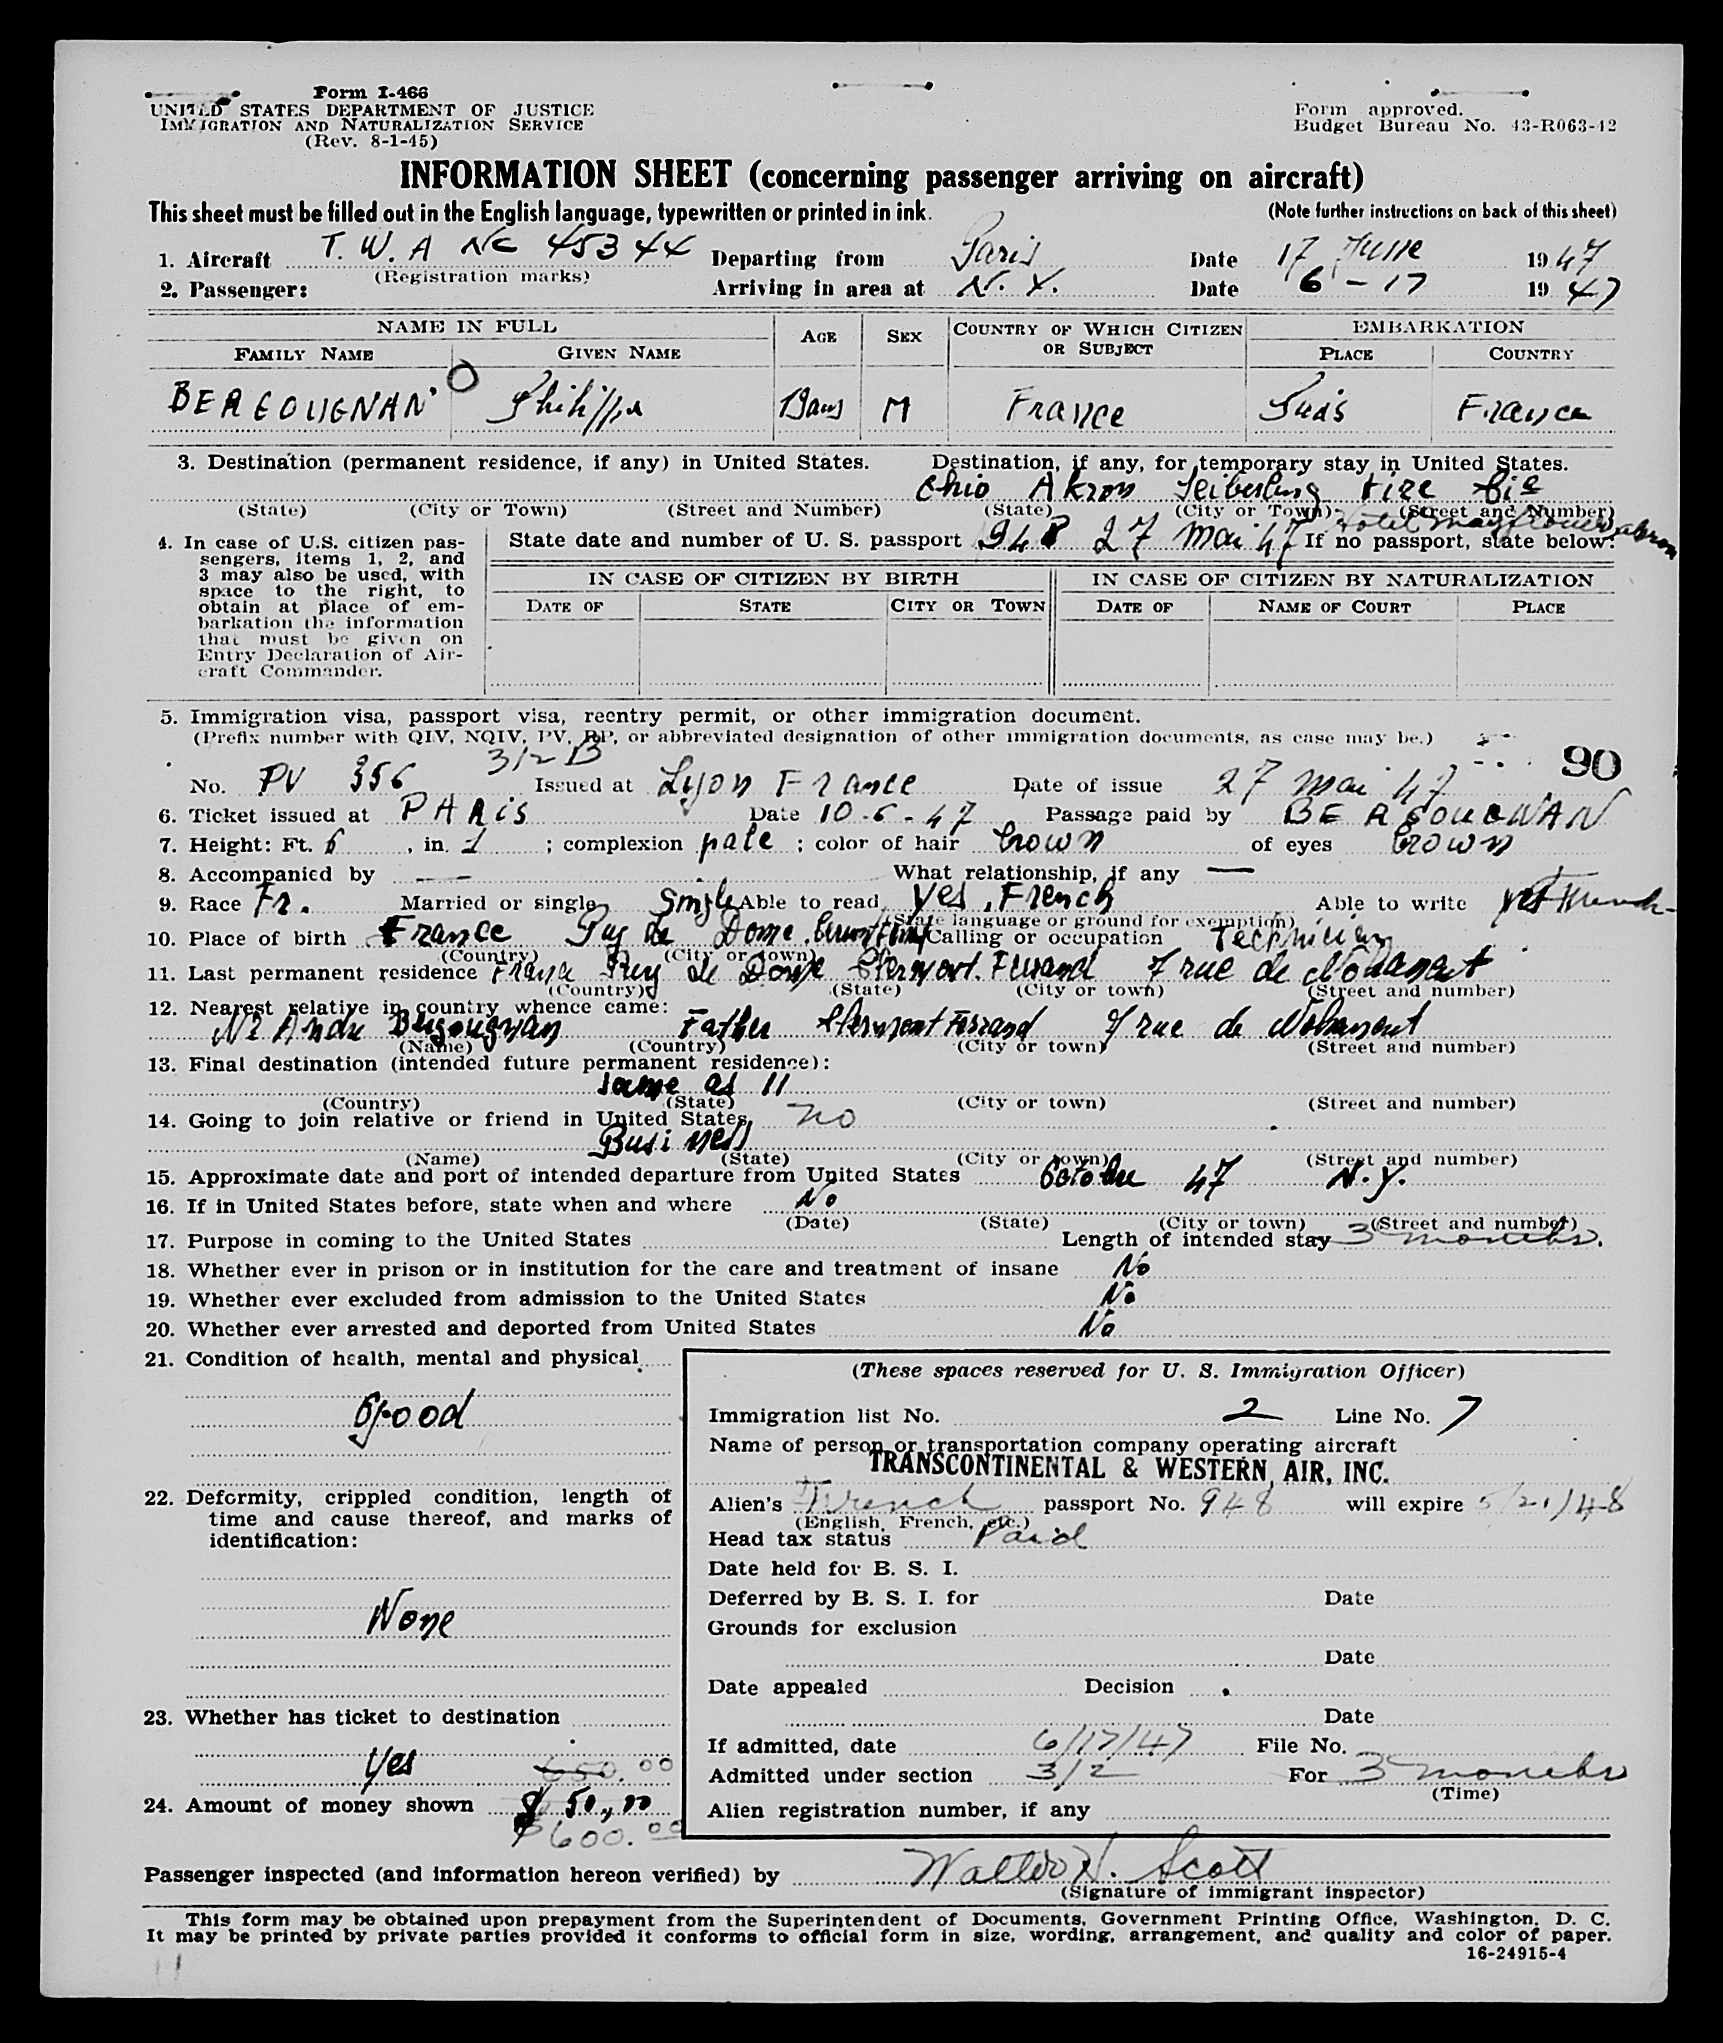 Form I-466
UNITED STATES DEPARTMENT OF JUSTICE
IMMIGRATION AND NATURALIZATION SERVICE
(Rev. 8-1-45)
Form approved.
Budget Bureau No. 43-R063-42
INFORMATION SHEET (concerning passenger arriving on aircraft)
This sheet must be filled out in the English language, typewritten or printed in ink.
(Note further instructions on back of this sheet)
1. Aircraft T.W.A NC 45344 Departing from Paris Date 17 June 1947
(Registration marks)
2. Passenger: Arriving in area at N.Y. Date 6-17 1947
NAME IN FULL AGE SEX COUNTRY OF WHICH CITIZEN OR SUBJECT EMBARKATION
FAMILY NAME GIVEN NAME PLACE COUNTRY
BERGOUGNAN Philippe M France Paris France
3. Destination (permanent residence, if any) in United States. Destination, if any, for temporary stay in United States.
Ohio Akron Seiberling tire Cie
(State) (City or Town) (Street and Number) (State) (City or Town) (Street and Number)
Hotel Mayflower Akron
4. In case of U.S. citizen passengers, items 1, 2, and 3 may also be used, with space to the right, to obtain at place of embarkation the information that must be given on Entry Declaration of Aircraft Commander.
State date and number of U. S. passport 948 27 Mai 47 If no passport, state below:
IN CASE OF CITIZEN BY BIRTH IN CASE OF CITIZEN BY NATURALIZATION
DATE OF STATE CITY OR TOWN DATE OF NAME OF COURT PLACE
5. Immigration visa, passport visa, reentry permit, or other immigration document.
(Prefix number with QIV, NQIV, PV, RP, or abbreviated designation of other immigration documents, as case may be.)
90
No. PV 356 312 B Issued at Lyon France Date of issue 27 Mai 47
6. Ticket issued at PARis Date 10-6-47 Passage paid by BERGOUGNAN
7. Height: Ft. 6, in. 1; complexion pale; color of hair brown of eyes brown
8. Accompanied by — What relationship, if any —
9. Race Fr. Married or single Single Able to read yes, French Able to write yes French
(State language or ground for exemption)
10. Place of birth France Puy de Dome, Calling or occupation Technician
(Country) (City or town)
11. Last permanent residence France Puy de Dome Clermont. Ferrand 7 rue de Nohanent
(Country) (State) (City or town) (Street and number)
12. Nearest relative in country whence came:
Mr Andre Bergougnan Father Clermont Ferrand 7 rue de Nohanent
(Name) (Country) (City or town) (Street and number)
13. Final destination (intended future permanent residence):
same as 11
(Country) (State) (City or town) (Street and number)
14. Going to join relative or friend in United States, no
Business
(Name) (State) (City or town) (Street and number)
15. Approximate date and port of intended departure from United States Octobre 47 N.Y.
16. If in United States before, state when and where No
(Date) (State) (City or town) (Street and number)
17. Purpose in coming to the United States Length of intended stay 3 months.
18. Whether ever in prison or in institution for the care and treatment of insane No
19. Whether ever excluded from admission to the United States No
20. Whether ever arrested and deported from United States No
21. Condition of health, mental and physical
Good
22. Deformity, crippled condition, length of time and cause thereof, and marks of identification:
None
23. Whether has ticket to destination
Yes
650.00
24. Amount of money shown $ 50,00
$600.00
(These spaces reserved for U. S. Immigration Officer)
Immigration list No. 2 Line No. 7
Name of person or transportation company operating aircraft
TRANSCONTINENTAL & WESTERN AIR, INC.
Alien's French passport No. 948 will expire 5/21/48
(English, French, etc.)
Head tax status Paid
Date held for B. S. I.
Deferred by B. S. I. for Date
Grounds for exclusion
Date
Date appealed Decision
Date
If admitted, date 6/17/47 File No.
Admitted under section 3/2 For 3 months
(Time)
Alien registration number, if any
Passenger inspected (and information hereon verified) by Walter H. Scott
(Signature of immigrant inspector)
This form may be obtained upon prepayment from the Superintendent of Documents, Government Printing Office, Washington, D. C.
It may be printed by private parties provided it conforms to official form in size, wording, arrangement, and quality and color of paper.
16-24915-4